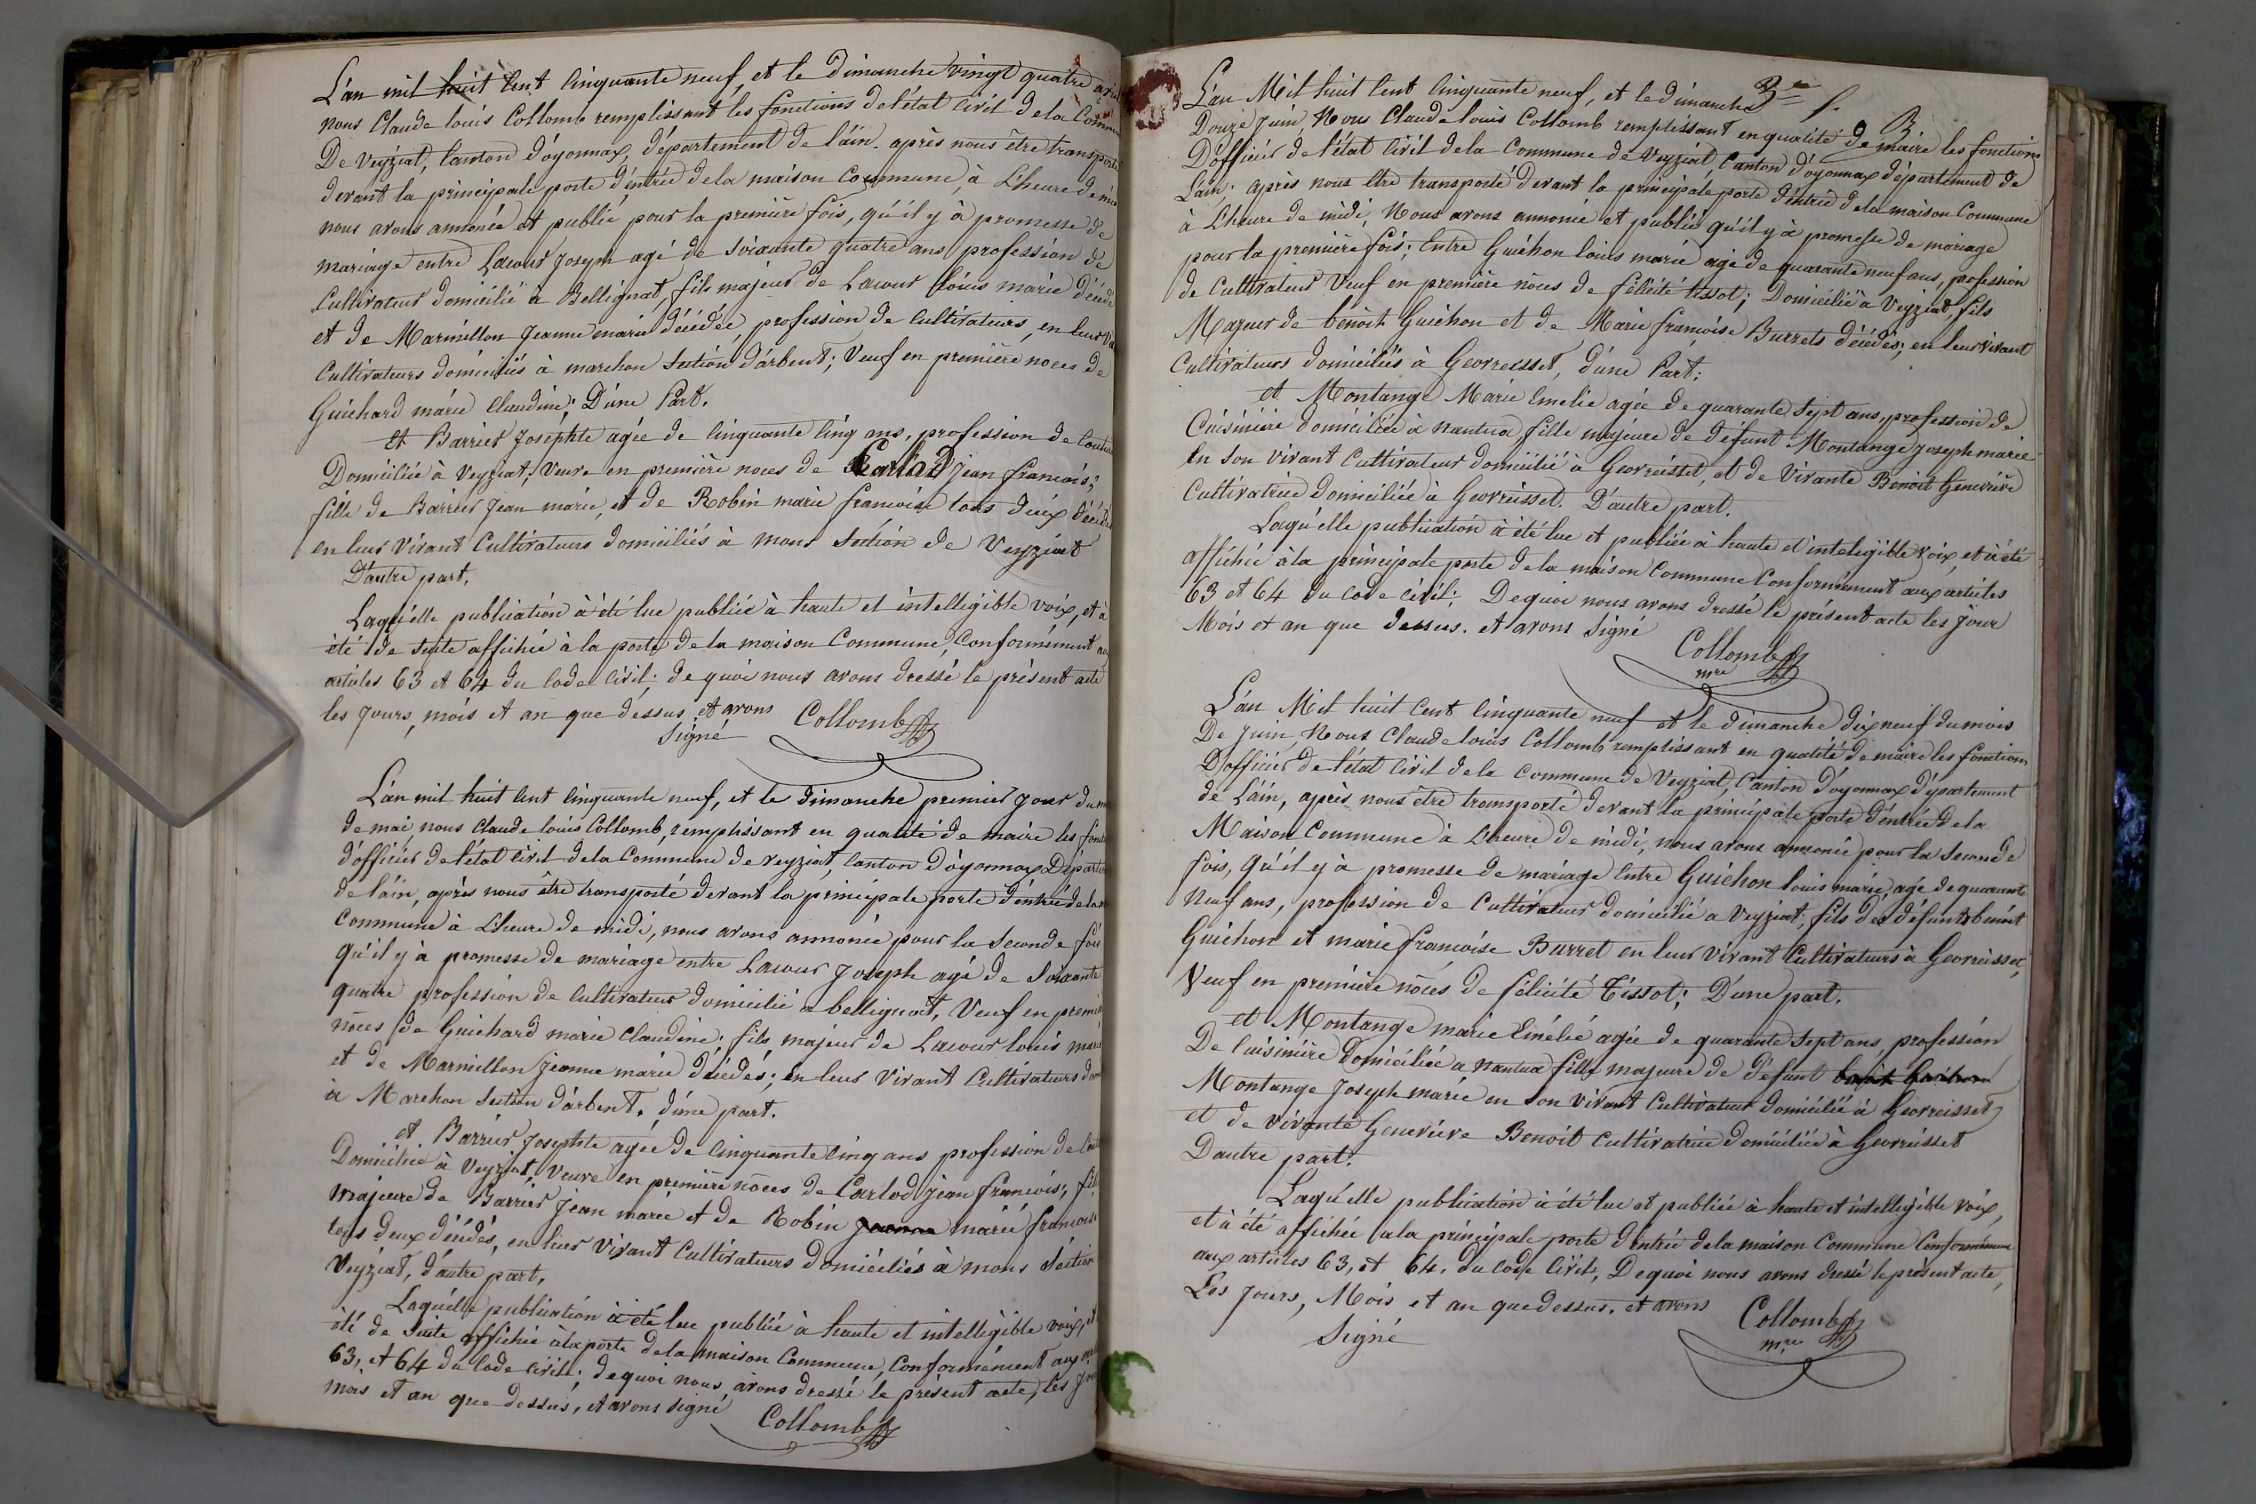 L'an mil huit Cent Cinquante neuf, et le dimanche vingt quatre avril
nous Claude louis Collomb remplissant les fonctions de l'état Civil de la Commu
De Veyziat, Canton d'oyonnax, département de l'ain. après nous être transporté
devant la principale porte d'entrée de la maison Commune, à L'heure de mi
nous avons annoncé et publié pour la première fois, qu'il y à promesse de
mariage entre Lacour Joseph agé de soixante quatre ans profession de
Cultivateur domicilié à Bellignat, fils majeur de Lacour Louis marie décédé
et de Marmillon Jeanne marie décédée, profession de Cultivateurs, en leur vi
Cultivateurs domiciliés à marchon Section d'arbent; Veuf en première noces de
Guichard marie Claudine; D'une Part.
et Barrier Josephte agée de Cinquante Cinq ans, profession de Coutu
Domiciliée à Veyziat; Veuve en première noces de Carlod jean francois;
fille de Barrier Jean marie, et de Robin marie francoise tous deux décédés
en leur Vivant Cultivateurs domiciliés à mons Section de Veyziat
D'autre part.
Laqu'elle publication à été lue publiée à haute et intelligible voix, et à
été de Suite affichée à la porte de la maison Commune, Conformément aux
articles 63 et 64 du Code Civil; de quoi nous avons dressé le présent acte
les Jours, mois et an que dessus et avons
Signé Collomb
L'an mil huit Cent Cinquante neuf, et le dimanche premier Jour du m
de mai, nous Claude louis Collomb, remplissant en qualité de maire les fonct
d'officier de l'état Civil de la Commune de Veyziat, Canton d'oyonnax Départem
de l'ain, après nous être transporté devant la principale porte d'entrée de la m
Commune à L'heure de midi, nous avons annoncée pour la Seconde fois
qu'il y à promesse de mariage entre Lacour Joseph agé de Soixante
quatre profession de Cultivateur domicilié a bellignat, Veuf en premiè
nôces de Guichard marie Claudine; fils majeur de Lacour louis marie
et de Marmillon Jeanne marie décédés; en leur Vivant Cultivateurs dom
à Marchon Section d'arbent. d'une part.
et Barrier Josephte agée de Cinquante Cinq ans profession de Cout
Domiciliée à Veyziat, Veuve en première nôces de Carlod Jean francois; fil
majeure de Barrier Jean marie et de Robin Jeanne marie francoise
tous deux décédés, en leur Vivant Cultivateurs domiciliés à mons Section
Veyziat, d'autre part.
Laqu'elle publication à été lue publiée à haute et intelligible voix, et
été de Suite affichée à la porte de la maison Commune, Conformément aux art
63, et 64 du Code Civil; de quoi nous avons dressé le présent acte, les Jou
mois et an que dessus, et avons signé
Collomb
L'an Mil huit Cent Cinquante neuf, et le dimanche
Douze Juin, Nous Claude louis Collomb remplissant en qualité de maire les fonctions
D'officier de l'état Civil de la Commune de Veyziat, Canton d'oyonnax département de
L'ain. après nous être transporté devant la principale porte d'entrée de la maison Commune
à L'heure de midi, Nous avons annoncé et publié qu'il y à promesse de mariage
pour la première fois; Entre Guichon louis marie agé de quarante neuf ans, profession
de Cultivateur Veuf en première nôces de félicité tissot; Domicilié a Veyziat, fils
Majeur de benoit Guichon et de Marie françoise Burrets décédés; en leur vivant
Cultivateurs domiciliés à Geovreisset, d'une Part;
et Montange Marie Emelie agée de quarante Sept ans, profession de
Cuisinière domiciliée à nantua, fille majeure de défunt Montange Joseph marie
En Son vivant Cultivateur domicilié à Geovreisset, et de Vivante Benoit Geneviève
Cultivatrice domiciliée à Geovreisset. D'autre part.
Laqu'elle publication à été lue et publiée à haute et inteligible voix, et à été
affichée à la principale porte de la maison Commune Conformément aux articles
63 et 64 du Code Civil; De quoi nous avons dressé le présent acte les Jour
Mois et an que dessus. et avons Signé
Collomb
mre
L'an Mil huit Cent Cinquante neuf et le dimanche dix neuf du mois
De Juin, Nous Claude louis Collomb remplissant en qualité de maire les fonctions
D'officier de l'état Civil de la Commune de Veyziat, Canton d'oyonnax département
de l'ain, après nous être transporté devant la principale porte d'entrée de la
Maison Commune à L'heure de midi, nous avons annoncé pour la Seconde
fois, qu'il y à promesse de mariage Entre Guichon louis marie, agé de quarante
Neuf ans, profession de Cultivateur domicilié a Veyziat; fils des défunts benoit
Guichon et marie françoise Burret en leur vivant Cultivateurs à Geovreisset,
Veuf en première nôces de félicité Tissot; D'une part.
et Montange marie Emélie agée de quarante Sept ans, profession
De Cuisinière domiciliée a nantua fille majeure de défunt benoit Guichon
Montange Joseph marie en Son vivant Cultivateur domicilié à Geovreisset
et de vivante Geneviève Benoit Cultivatrice domiciliée à Geovreisset
D'autre part.
Laqu'elle publication à été lue et publiée à haute et intelligible voix,
et à été affichée a la principale porte d'entrée de la maison Commune Conformément
aux articles 63, et 64, du Code Civil, De quoi nous avons dressé le présent acte,
Les Jours, Mois et an que dessus. et avons
Signé Collomb
mre